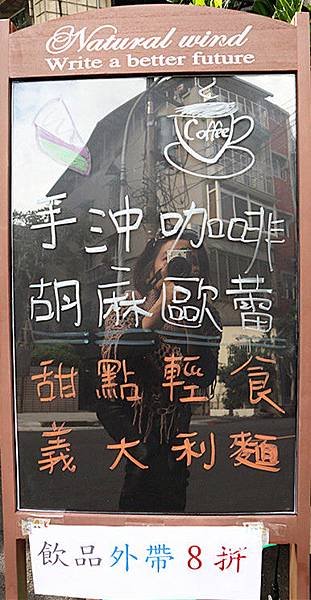 Natural wind
Write a better future
Coffee
手沖咖啡
胡麻歐蕾
甜點輕食
義大利麵
飲品外帶8折